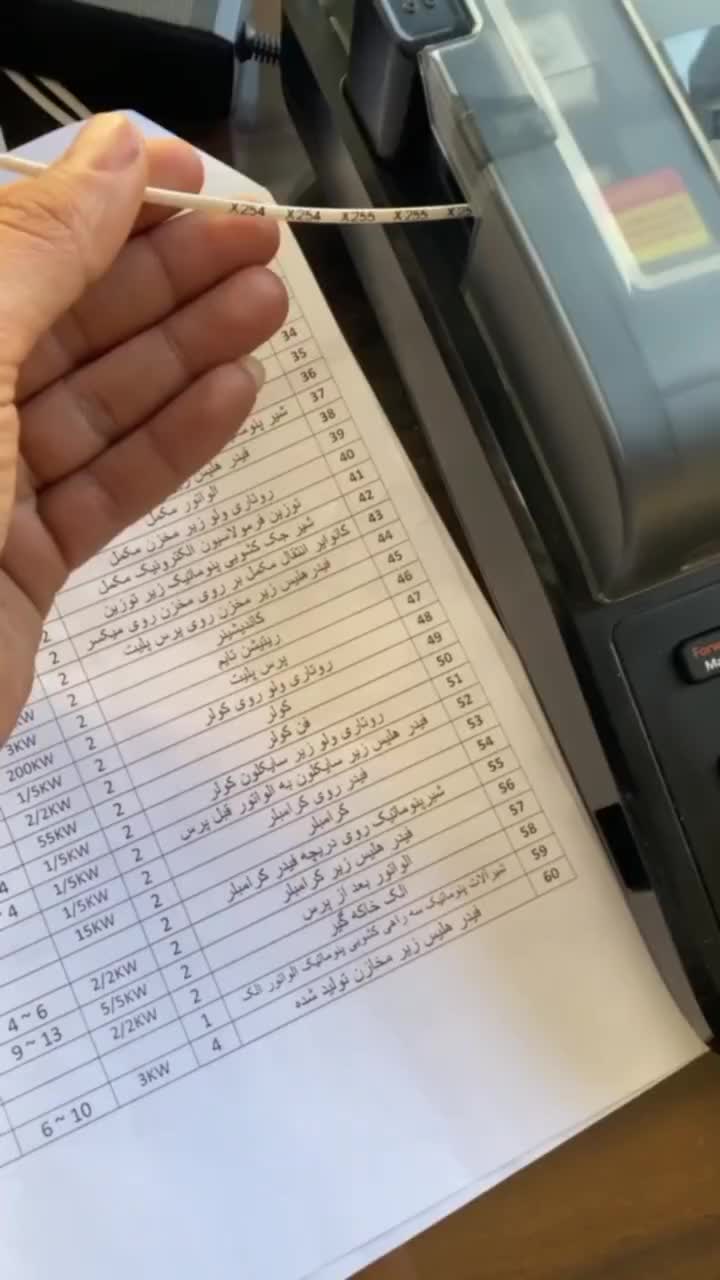 X254 X254 X255 X255 X25
34
35
36
37
شیر 38
فیدر هلیس 39
الواتور مکمل 40
روتاری ولو زیر مخزن مکمل 41
توزین فرمولاسیون الکترونیک مکمل 42
شیر جک کشویی پنوماتیک زیر توزین 43
2 کانوایر انتقال مکمل بر روی مخزن روی میکسر 44
2 فیدر هلیس زیر مخزن روی پرس پلیت 45
2 کاندیشینر 46
KW 2 ریتیشن تایم 47
3KW 2 پرس پلیت 48
200KW 2 روتاری ولو روی کولر 49
1/5KW 2 کولر 50
2/2KW 2 فن کولر 51
55KW 2 روتاری ولو زیر سایکلون کولر 52
4 1/5KW 2 فیدر هلیس زیر سایکلون به الواتور قبل پرس 53
4 1/5KW 2 فیدر روی کرامبلر 54
1/5KW 2 کرامبلر 55
15KW 2 شیر پنوماتیک روی دریچه فیدر کرامبلر 56
2 فیدر هلیس زیر کرامبلر 57
4 ~ 6 2/2KW 2 الواتور بعد از پرس 58
9 ~ 13 5/5KW 2 الک خاکه گیر 59
2/2KW 1 شیرآلات پنوماتیک سه راهی کشویی پنوماتیک الواتور الک 60
6 ~ 10 3KW 4 فیدر هلیس زیر مخازن تولید شده